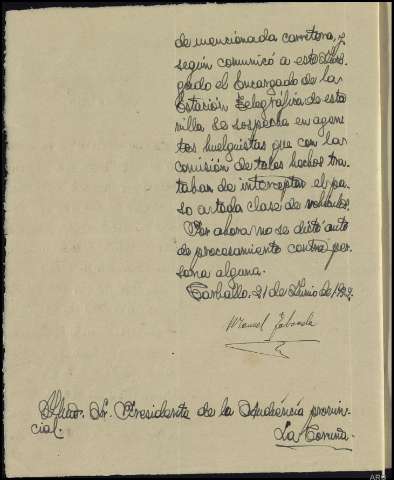 de mencionada carretera, y
según comunicó a este Juz-
gado el Encargado de la
Estación Telegráfica de esta
villa se sospecha en agen-
tes huelguistas que con la
comisión de tales hechos tra-
taban de interceptar el pa-
so a toda clase de vehículos.
Por ahora no se dictó auto
de procesamiento contra per-
sona alguna.
Carballo, 21 de Junio de
Manuel
Iltmo. Sr. Presidente de la Audiencia provin-
cial.
La Coruña.